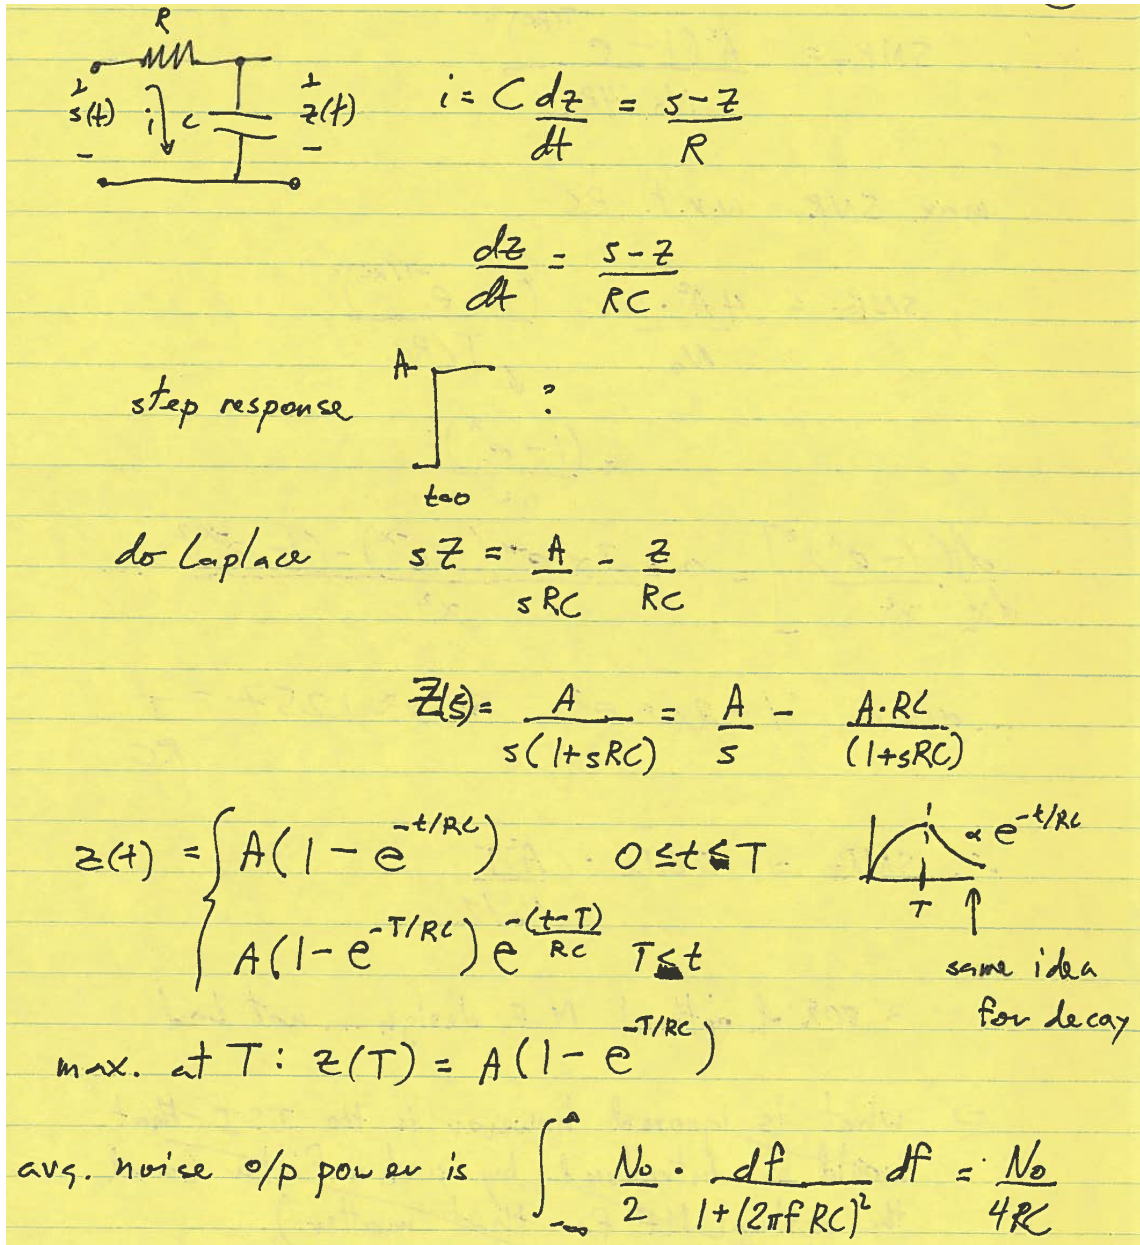 R
+ +
s(t) i C z(t) i = C dz/dt = s-z/R
- -
dz/dt = s-z/RC
A
step response ?
t=0
do Laplace sZ = A/sRC - Z/RC
Z(s) = A/s(1+sRC) = A/s - A·RC/(1+sRC)
z(t) = { A(1 - e^-t/RC) 0 ≤ t ≤ T ∝ e^-t/RC
T
A(1 - e^-T/RC) e^-(t-T)/RC T ≤ t
same idea
for decay
max. at T: z(T) = A(1 - e^-T/RC)
avg. noise o/p power is ∫_-∞^∞ No/2 · df/1+(2πf RC)² df = No/4RC